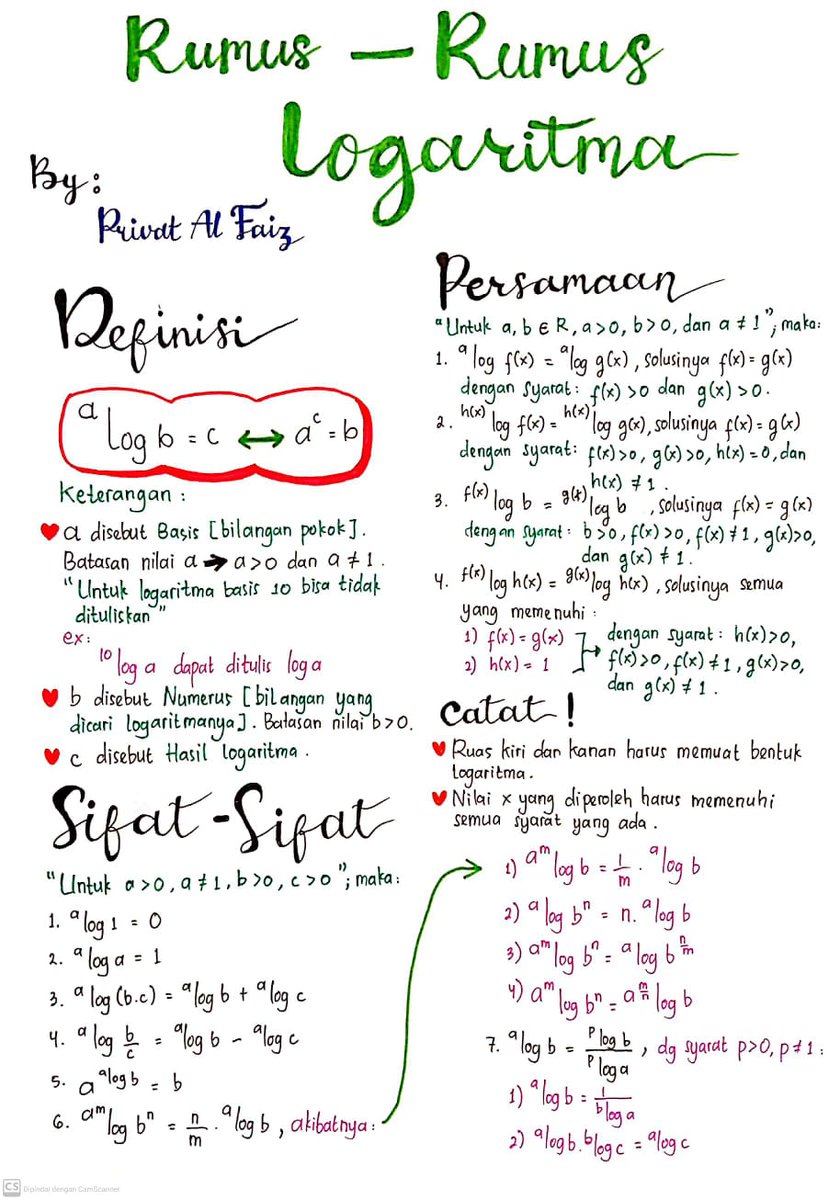 Rumus - Rumus
Logaritma
By:
Privat Al Faiz
Definisi
ᵃlog b = c ↔ aᶜ = b
Keterangan :
♥ a disebut Basis [bilangan pokok].
Batasan nilai a → a>0 dan a ≠ 1.
"Untuk logaritma basis 10 bisa tidak
dituliskan"
ex:
¹⁰log a dapat ditulis log a
♥ b disebut Numerus [bilangan yang
dicari logaritmanya]. Batasan nilai b>0.
♥ c disebut Hasil logaritma.
Sifat-Sifat
"Untuk a>0, a≠1, b>0, c>0"; maka:
1. ᵃlog 1 = 0
2. ᵃlog a = 1
3. ᵃlog (b.c) = ᵃlog b + ᵃlog c
4. ᵃlog b/c = ᵃlog b - ᵃlog c
5. a^(ᵃlog b) = b
6. ^(a^m)log bⁿ = n/m . ᵃlog b, akibatnya:
1) ^(a^m)log b = 1/m . ᵃlog b
2) ᵃlog bⁿ = n. ᵃlog b
3) ^(a^m)log bⁿ = ᵃlog b^(n/m)
4) ^(a^m)log bⁿ = ^(a^(m/n))log b
7. ᵃlog b = ᵖlog b / ᵖlog a, dg syarat p>0, p≠1:
1) ᵃlog b = 1 / ᵇlog a
2) ᵃlog b. ᵇlog c = ᵃlog c
Persamaan
"Untuk a, b ∈ R, a>0, b>0, dan a ≠ 1"; maka:
1. ᵃlog f(x) = ᵃlog g(x), solusinya f(x) = g(x)
dengan syarat: f(x) >0 dan g(x) >0.
2. ^h(x)log f(x) = ^h(x)log g(x), solusinya f(x) = g(x)
dengan syarat: f(x)>0, g(x)>0, h(x)=0, dan
h(x) ≠ 1.
3. ^f(x)log b = ^g(x)log b, solusinya f(x) = g(x)
dengan syarat: b>0, f(x)>0, f(x)≠1, g(x)>0,
dan g(x) ≠ 1.
4. ^f(x)log h(x) = ^g(x)log h(x), solusinya semua
yang memenuhi:
1) f(x) = g(x)
2) h(x) = 1
dengan syarat: h(x)>0,
f(x)>0, f(x)≠1, g(x)>0,
dan g(x) ≠ 1.
Catat!
♥ Ruas kiri dan kanan harus memuat bentuk
logaritma.
♥ Nilai x yang diperoleh harus memenuhi
semua syarat yang ada.
CS Dipindai dengan CamScanner